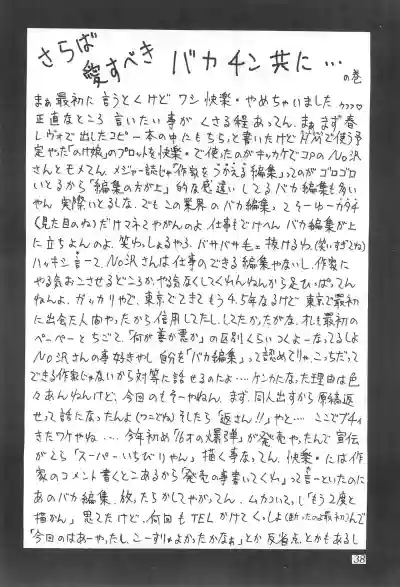 さらば
愛すべき バカチン共に…
の巻
まぁ最初に言うとくけど ワシ 快楽・やめちゃいました ククク♡
正直なところ 言いたい事が くさる程あってん。まぁ まず 春
レヴォで出したコピー本の中にもちらっと書いたけど HMで使う予
定やった「のけ娘」のプロットを快楽・で使ったのがキッカケでコPのNo沢
さんとモメてん。メジャー誌じゃ「作家をうかえる編集」ってのがゴロゴロ
いとるから“編集の方が上”的な感違いしてるバカ編集も多い
やん 実際いとるしな。でもこの業界のバカ編集、てそーゆーカタチ
(見た目のね)だけマネてやがんのよ 仕事もでけへん バカ編集が上
に立ちよんのよ。笑わっしょるやろ、バサバサ毛ェ抜けるわ。(笑いすぎてね)
ハッキシ言ーて、No沢さんは仕事のできる編集やないし、作家に
やる気おこさせるどころか、やる気なくしてくれんねんから足ひっぱってん
ねんよ。ガッカリやで、東京でてきてもう4.5年なるけど 東京で最初
に出会た人間やったから信用してたし、してたかったがな。れも最初の
ペーペーとちごて、「何が善か悪か」の区別くらいつくよーなってるしよ
No沢さんの事好きやし 自分を「バカ編集」って認めてりゃ、こっちだって
できる作家じゃないから対等に話せるのたよ…。ケンカにな、た理由は色
々あんねんけど、今回のもそーやねん。まず、同人出すから原稿返
せって話になったんよ(ワニでね)そしたら「返さん!!」やと…。ここでブチィ
きたワケやね…。今年初め「16才の爆弾」が発売やったんで宣伝
がてら「スーパーいちびりやん」描く事なってん。快楽・には作
家のコメント書くとこあるから「発売の事書いてくれ」って言ーといたのに
あのバカ編集、放ったらかしてやがってん、ムカついてし「もう2度と
描かん」思てたけど、何回もTELかけてくっしよ(断ったのよ最初)んで
「今回のはあーやったし、こーすりゃよかったかなぁ」とか反省点とかもあるし
38